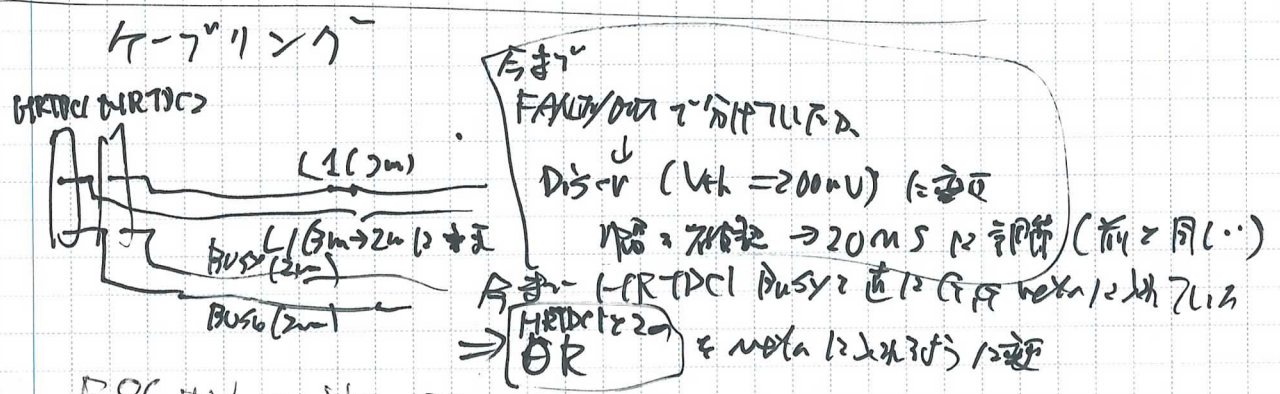 ケーブリング
HRTDC1 HRTDC2
L1(2m)
L1(3m→2mに変更
BUSY(2m)
BUSY(2m)
今まで
FANIN/OUTで分けていたが、
↓
Discr (Vth = 200mV) に変更
幅 →20nsに調節(前と同じ‥)
今まで HRTDC1 BUSYを直に に入れている
⇒ HRTDC1と2の
OR を に入れるように変更